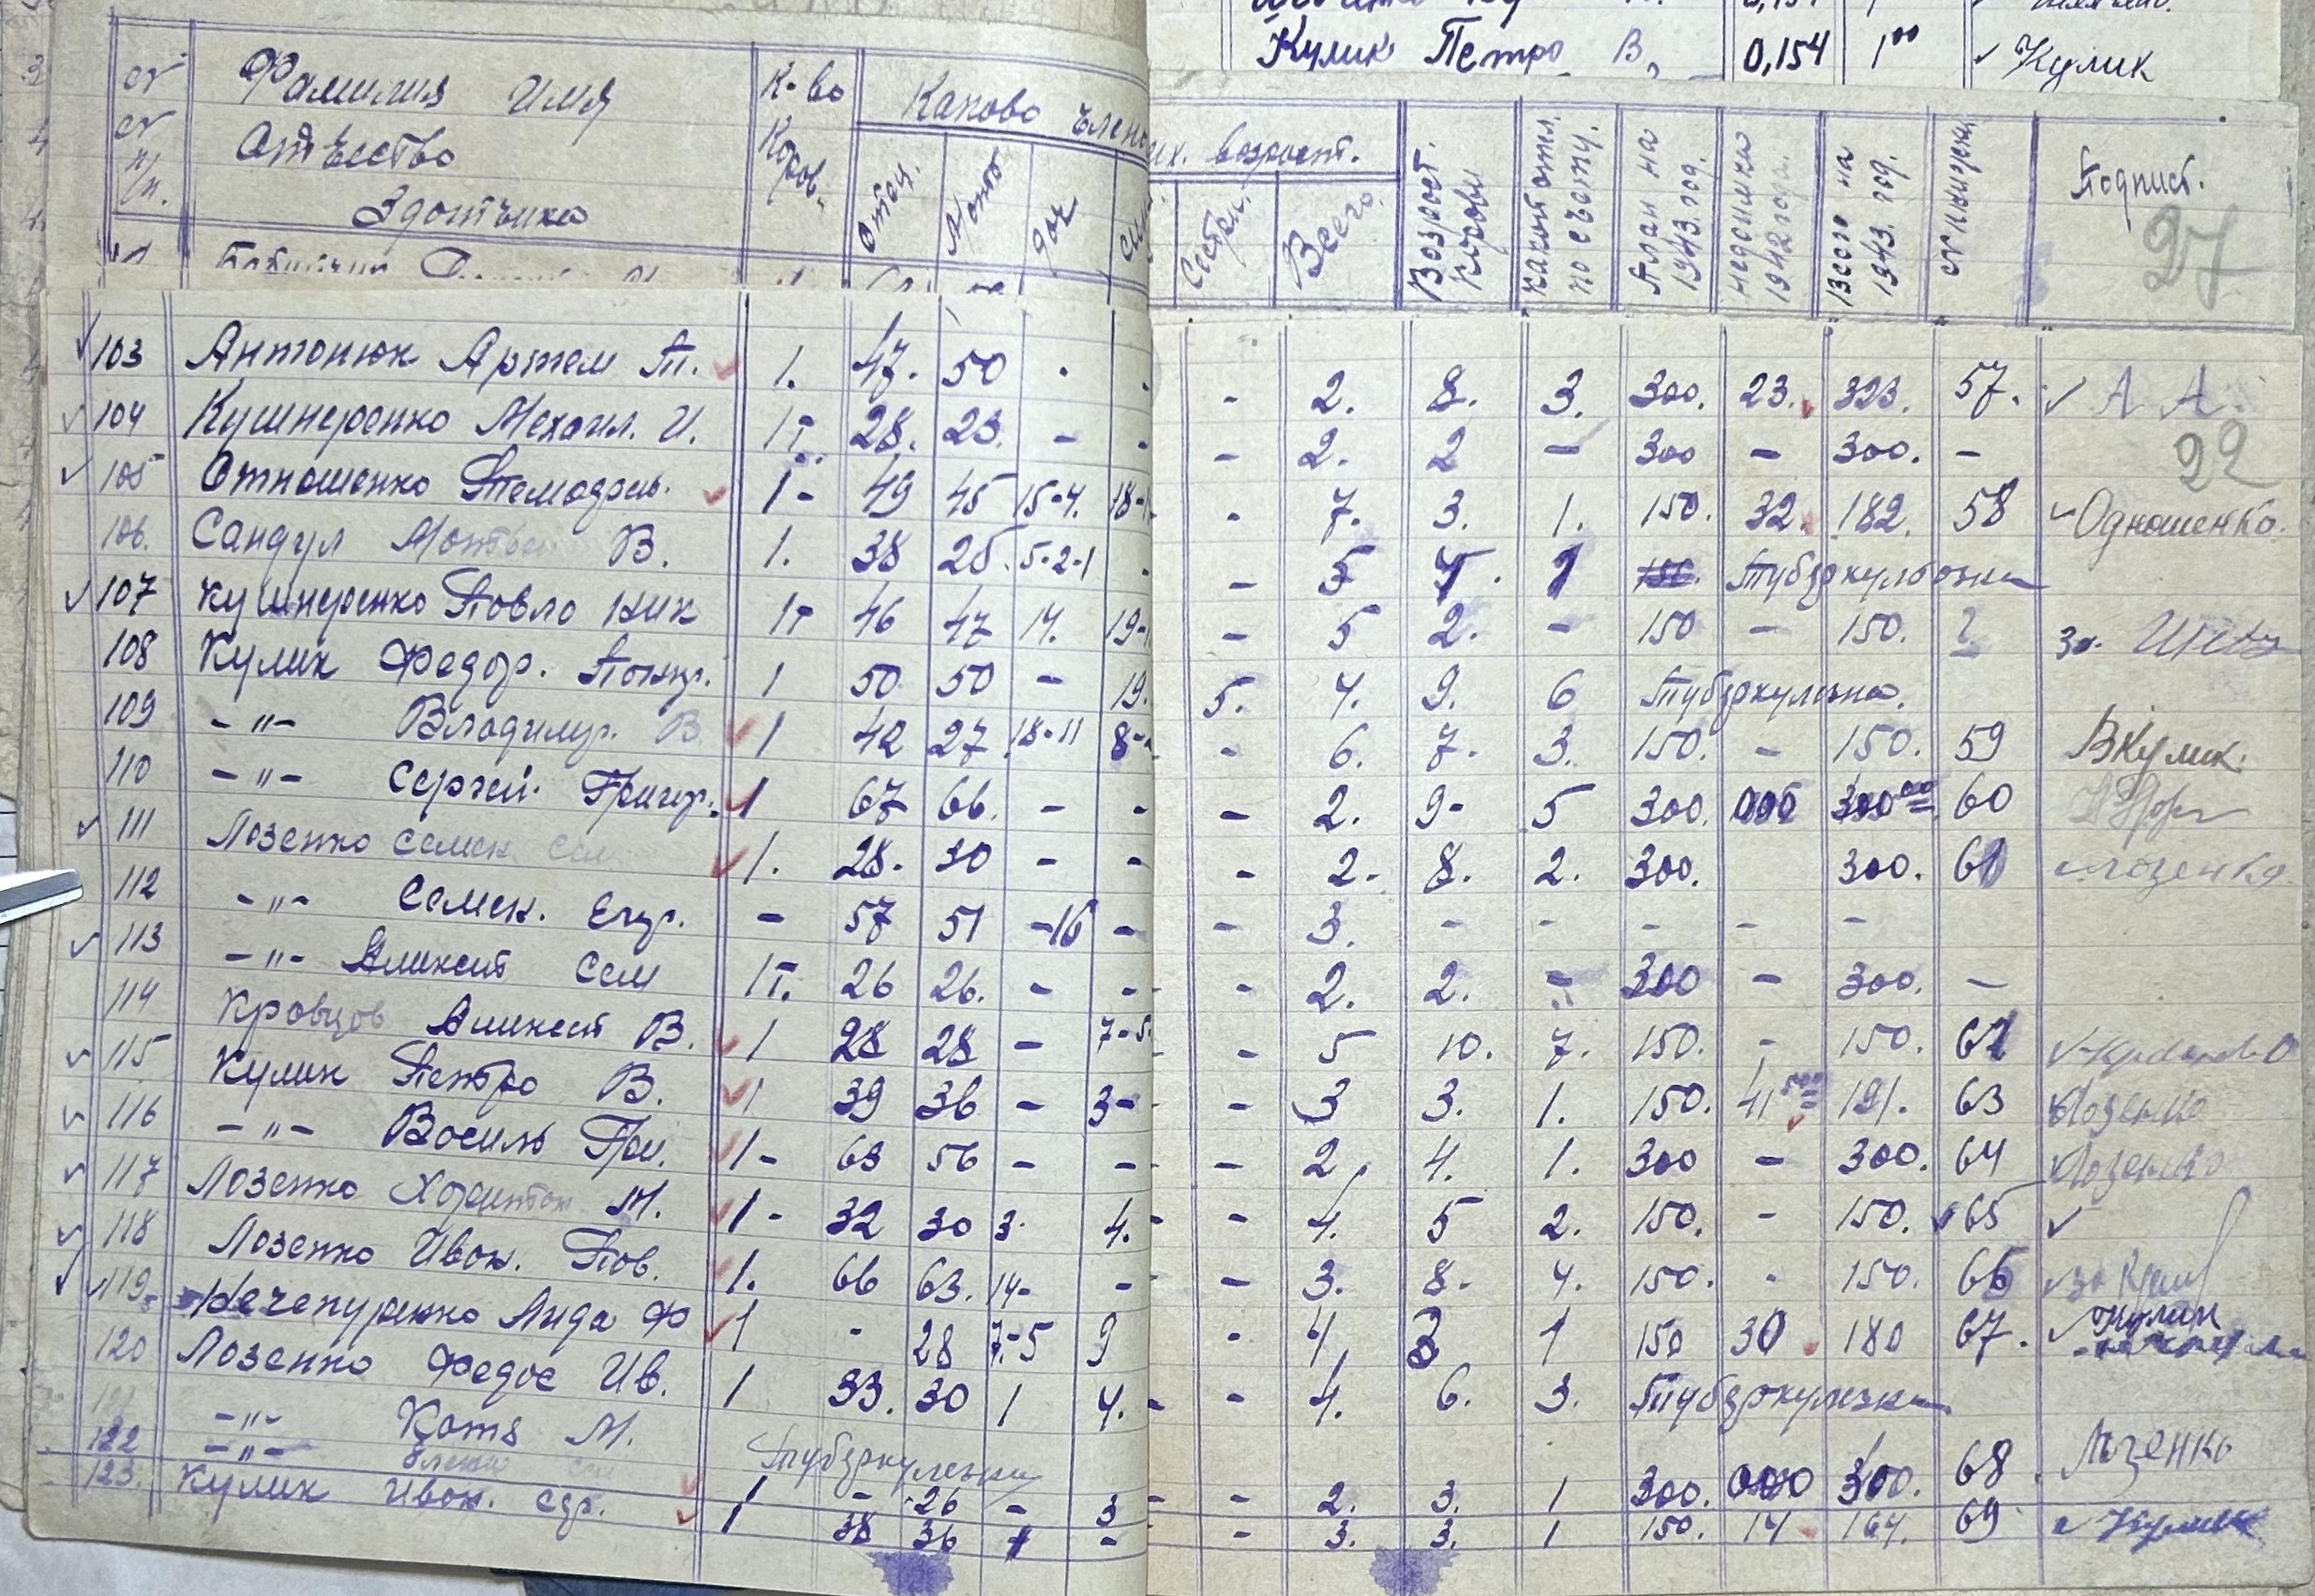 Кулик Петро В. 0,154 1⁰⁰ ✓ Кулик
№№ п/п. Фамилия Имя Отчество Здатчика К-во Коров. Каково член их. возраст. Отец. Мать доч сын сестры. Всего. Возраст. Коровы какой отел. по счету. План на 1943. год. недоимка 1942 года. Всего на 1943. год. № книжки Подпист.
27
103 Антонюк Артем П. 1. 47. 50 - - - 2. 8. 3. 300. 23. 323. 57. ✓ А А.
104 Кушнеренко Механл. И. 1т. 28. 23. - - - 2. 2 - 300 - 300. - 22
105 Отношенко 1- 49 45 15-4. 18- - 7. 3. 1. 150. 32. 182. 58 ✓ Одношенко.
106. Сандул Мотвей В. 1. 38 25. 5-2-1 - - 5 1 150. Тубэркульозна
107 Кушнеренко Повло ник 1т 46 47 14. 19- - 5 2. - 150 - 150. ? за.
108 Кулик Федор. 1 50 50 - 19. 5. 4. 9. 6 Тубэркулезна.
109 -"- Владимир. В 1 42 27 18-11 8- - 6. 7. 3. 150. - 150. 59 ВКулик.
110 -"- Сергей. Григор. 1 67 66. - - - 2. 9- 5 300. 000 300⁰⁰ 60
111 Лозенко Семен Сем 1. 28. 30 - - - 2. 8. 2. 300. 300. 61 Лозенко
112 -"- Семен. Егор. - 57 51 -16 - - 3. - - - - -
113 -"- Аликсит Сем 1т. 26 26. - - - 2. 2. - 300 - 300. -
114 Кровцов Аликсит В. 1 28 28 - 7-5. - 5 10. 7. 150. - 150. 62 ✓
115 Кулик Петро В. 1 39 36 - 3- - 3 3. 1. 150. 41⁵⁰⁰ 191. 63 Лозенко
116 -"- Восиль Гри. 1- 63 56 - - - 2. 4. 1. 300 - 300. 64 Лозенко
117 Лозенко Харитон М. 1- 32 30 3. 4. - 4. 5 2. 150. - 150. 65 ✓
118 Лозенко Ивон. Пов. 1. 66 63. 14- - - 3. 8. 4. 150. - 150. 66 ✓ за
119. Нечепуренко Лида Ф 1 - 28 7-5 9 - 4, 3 1 150 30 180 67. ✓ Кулик
120 Лозенко Федос Ив. 1 33. 30 1 4. - 4. 6. 3. Тубэркулезна
-"- Котя М. Тубэркулезна
122 -"- 1 - 26 - 3 - 2. 3. 1 300. 000 300. 68 Лозенко
123. Кулик Ивон. 1 38 36 1 - - 3. 3. 1 150. 14 164. 69 Кулик